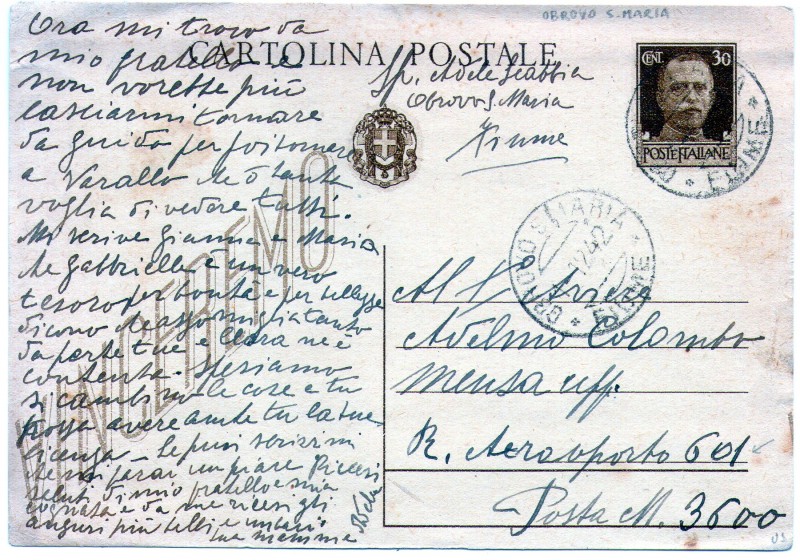 OBROVO S. MARIA
CARTOLINA POSTALE
CENT. 30
POSTE ITALIANE
VINCEREMO
Sp. Adele Scabbia
Obrovo S. Maria
Fiume
OBROVO S. MARIA * FIUME *
All'Aviere
Adelmo Colombo
Mensa uff.
R. Aeroporto 601
Posta M. 3600
Ora mi trovo da
mio fratello e
non vorebbe più
lasciarmi tornare
da Guido per poi tornare
a Varallo che ò tanta
voglia di vedere tutti.
Mi scrive Gianna e Maria
che Gabbriella è un vero
tesoro per bontà e per bellezza
dicono che assomiglia tanto
da parte tue e Clara ne è
contenta. Speriamo
si cambino le cose e tu
possa avere anche tu la tue
licenza - Se puoi scrivimi
che mi farai un piacere Ricevi
saluti di mio fratello e mia
cognata e da me ricevi gli
auguri più belli e un bacio
tua mamma Adele